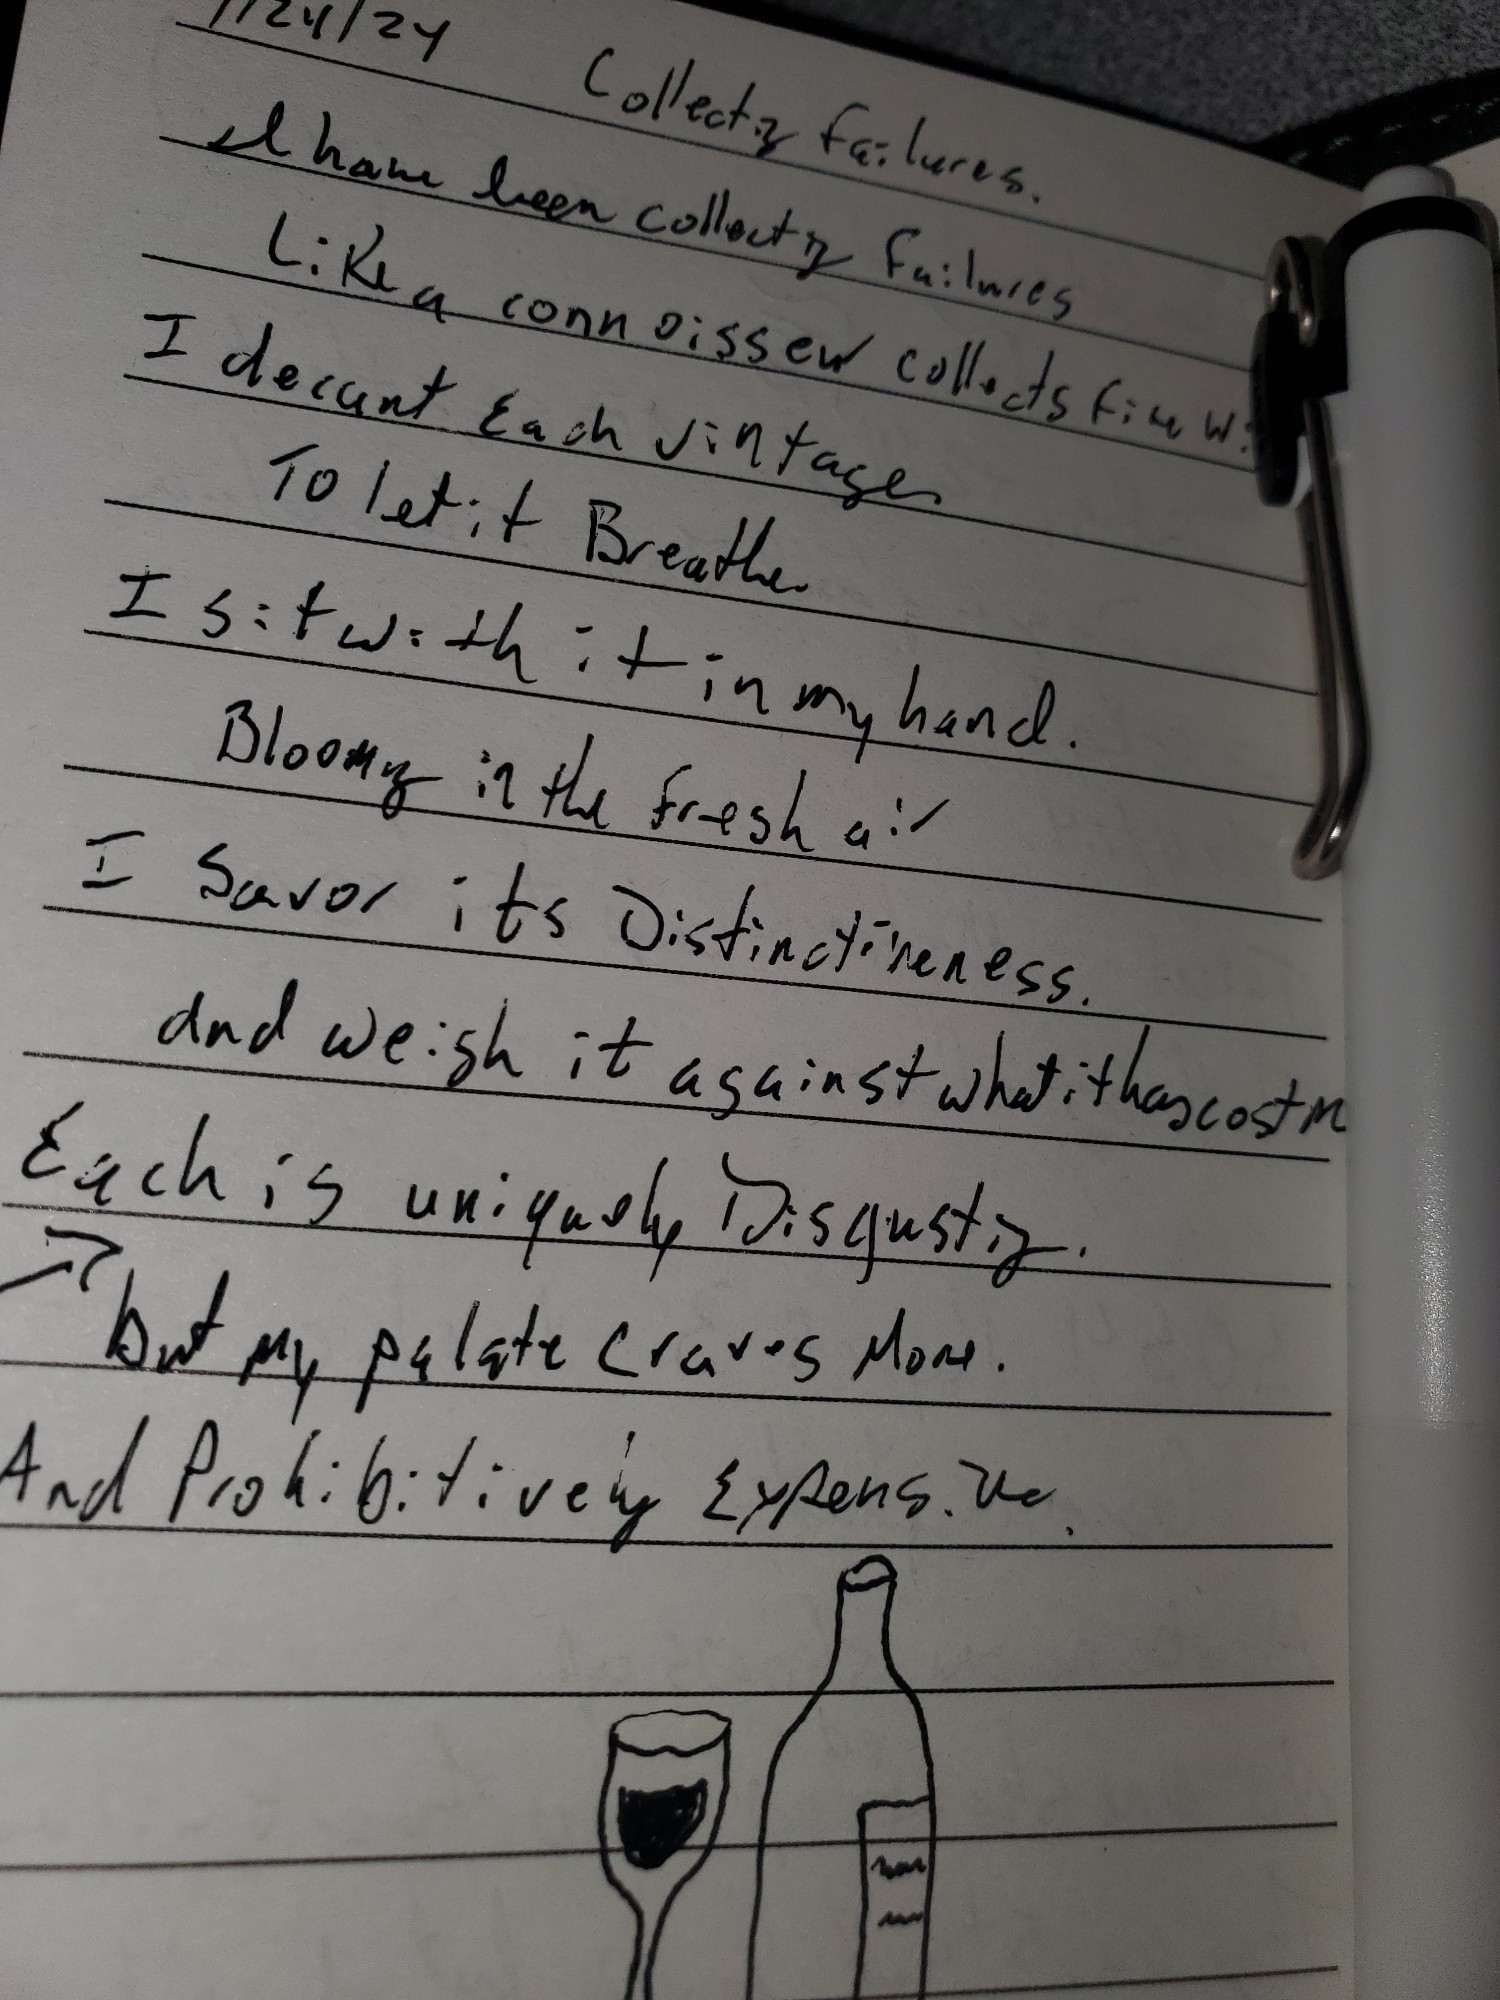 /24/24
Collecting Failures.
I have been collecting failures
Like a connoisseur collects fine
I decant Each vintage
To let it Breathe
I sit with it in my hand.
Blooming in the fresh air
I Savor its Distinctiveness.
and weigh it against what it has cost
Each is uniquely Disgusting.
but my palate craves More.
And Prohibitively Expensive.